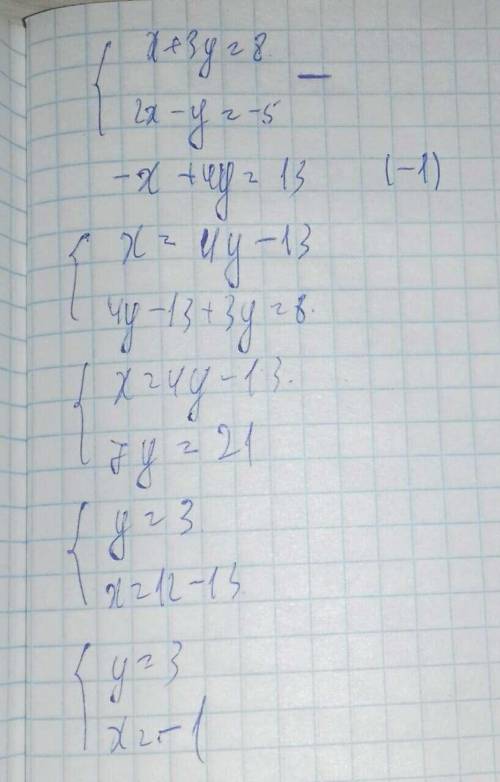 x+3y=8
—
2x-y=-5
-x+4y=13 (-1)
x=4y-13
4y-13+3y=8.
x=4y-13.
7y=21
y=3
x=12-13
y=3
x=-1